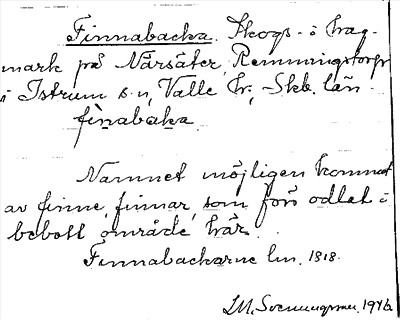 Finnabacka. Skogs- o hag-
mark på Närsäter, Remmingstorp
i Istrum s:n, Valle hr, Skb. län
fìnabaka.
Namnet möjligen kommet
av finne, finnar, som förr odlat o
bebott område här.
Finnabackarne lm. 1818.
1946